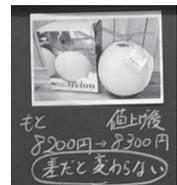 Melon
もと 値上げ後
8200円→8300円
差だと変わらない